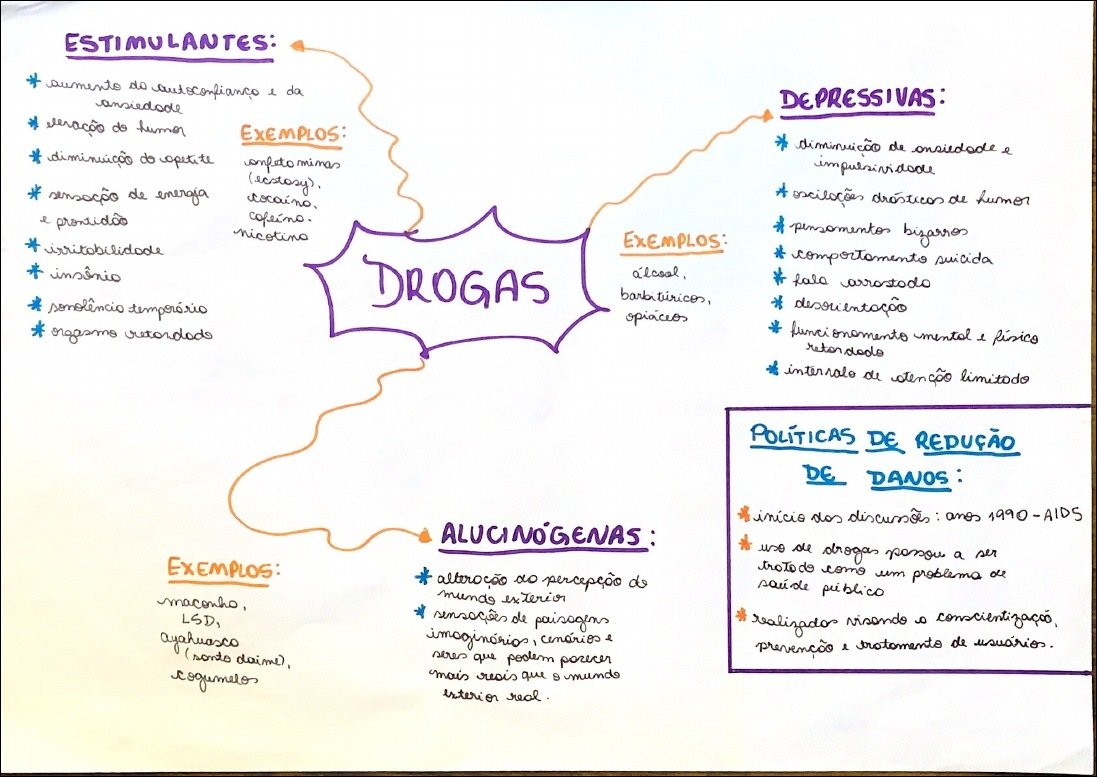 ESTIMULANTES:
* aumento da autoconfiança e da
ansiedade
* elevação do humor
* diminuição do apetite
* sensação de energia
e prontidão
* irritabilidade
* insônia
* sonolência temporária
* orgasmo retardado
EXEMPLOS:
anfetaminas
(ecstasy),
cocaína,
cafeína.
nicotina
DROGAS
DEPRESSIVAS:
* diminuição de ansiedade e
impulsividade
* oscilações drásticas de humor
* pensamentos bizarros
* comportamento suicida
* fala arrastada
* desorientação
* funcionamento mental e físico
retardado
* intervalo de atenção limitado
EXEMPLOS:
álcool,
barbitúricos,
opiáceos
POLÍTICAS DE REDUÇÃO
DE DANOS:
* início das discussões: anos 1990 - AIDS
* uso de drogas passou a ser
tratado como um problema de
saúde pública
* realizadas visando a conscientização,
prevenção e tratamento de usuários.
ALUCINÓGENAS:
* alteração da percepção do
mundo exterior
* sensações de paisagens
imaginárias, cenários e
seres que podem parecer
mais reais que o mundo
exterior real.
EXEMPLOS:
maconha,
LSD,
ayahuasca
(santo daime),
cogumelos